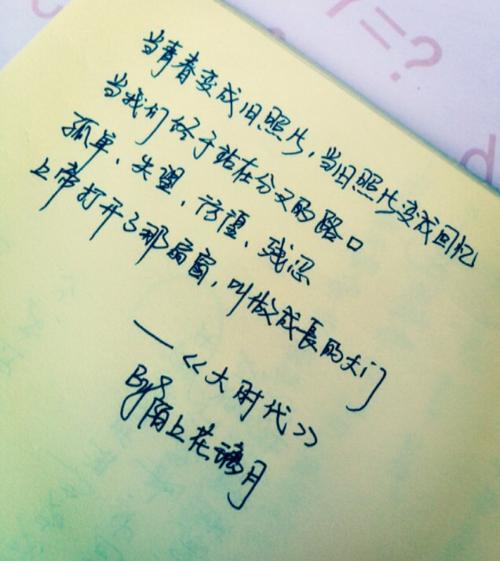 当青春变成旧照片，当旧照片变成回忆
当我们终于站在分叉的路口
孤单、失望、彷徨、残忍
上帝打开了那扇窗，叫做成长的大门
—《大时代》
By 陌上花 月
Y=?